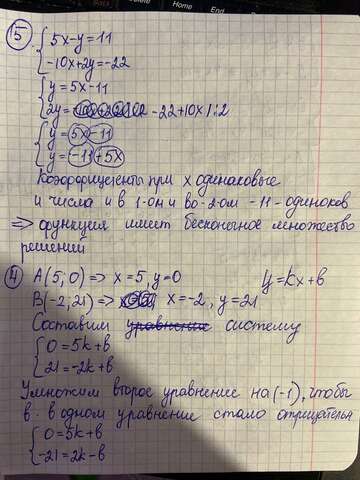 5
5x-y=11
-10x+2y=-22
y=5x-11
2y= -22+10x |:2
y=5x-11
y=-11+5x
Коэффициенты при x одинаковые
и числа и в 1-ом и во 2-ом -11 - одинаков
=> функция имеет бесконечное множество
решений
4 A(5;0) => x=5, y=0 y=kx+b
B(-2;21) => x=-2, y=21
Составим уравнение систему
0=5k+b
21=-2k+b
Умножим второе уравнение на (-1), чтобы
в в одном уравнение стало отрицательн
0=5k+b
-21=2k-b